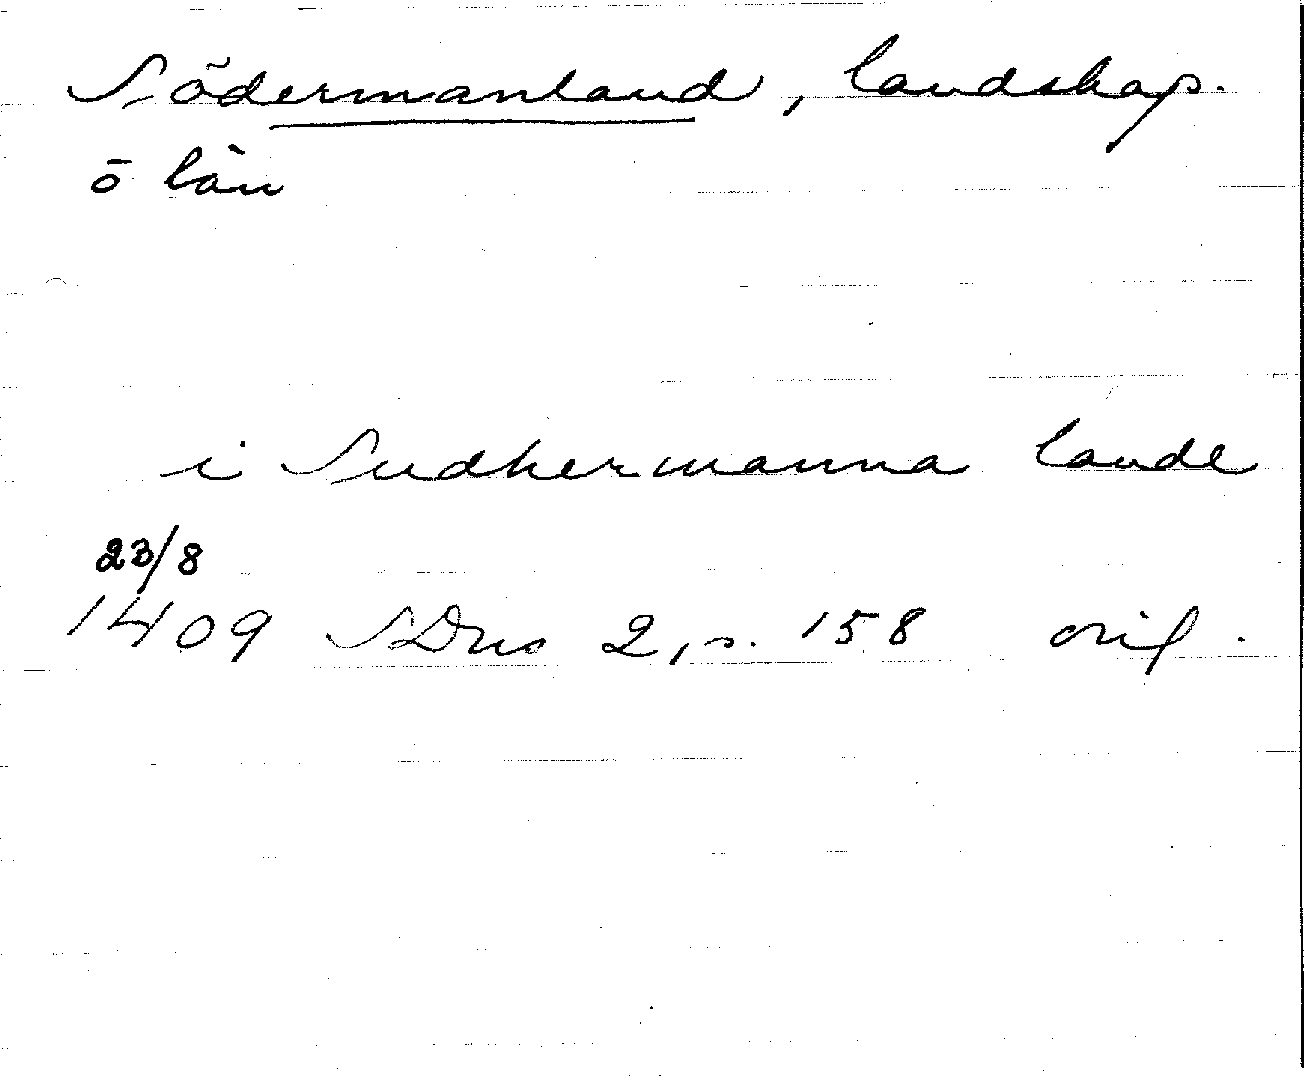 Södermanland, landskap.
ō län
i Sudhermanna lande
23/8
1409 SDns 2, s. 158 orig.